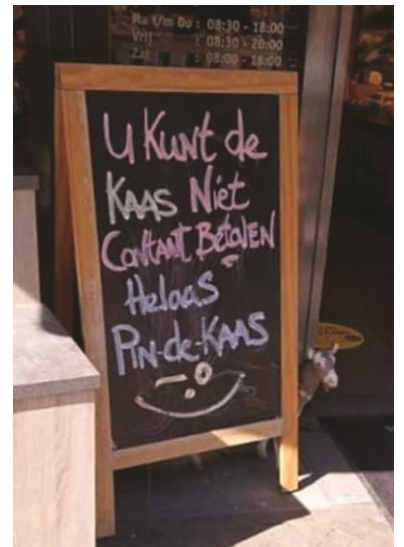 Ma t/m Do : 08:30 - 18:00
Vrij : 08:30 - 20:00
Zat : 08:00 - 18:00
U Kunt de
KAAS Niet
Contant BetaLEN
Helaas
Pin-de-KAAS